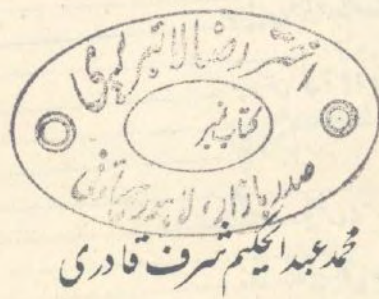 اختر رضا لائبریری
کتاب نمبر
صدر بازار، لاہور چھاؤنی
محمد عبدالحکیم شرف قادری